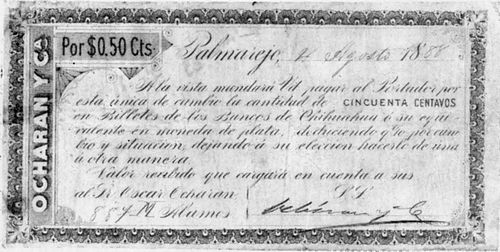 OCHARAN Y Cª
Por $0.50 Cts.
Palmarejo, 4 Agosto 1888
A la vista mandará Vd pagar al Portador por
esta única de cambio la cantidad de CINCUENTA CENTAVOS
en Billetes de los Bancos de Chihuahua ó su equi
valente en moneda de plata, deduciendo % por cam
bio y situacion, dejando á su eleccion hacerlo de una
ú otra manera.
Valor recibido que cargará en cuenta a sus
al Sr. Oscar Ocharan S.S.
Alamos Ocharan y C